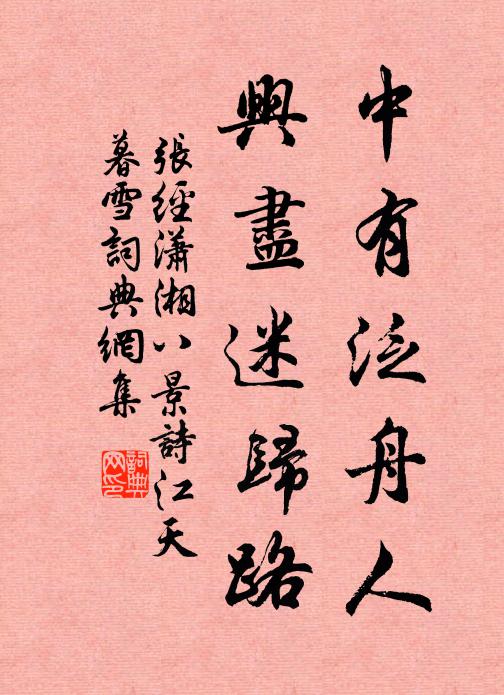 中有泛舟人
興盡迷歸路
張經瀟湘八景詩江天
暮雪詞典網集
詞典網印